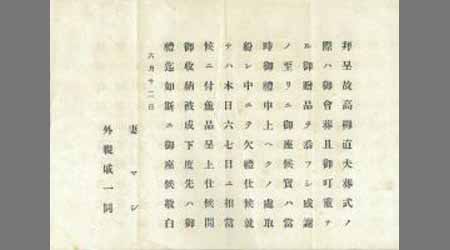 拜呈故高柳直夫葬式ノ
際ハ御會葬且御叮重ナ
ル御贈品ヲ忝フシ感謝
ノ至リニ御座候實ハ當
時御禮申上ヘクノ處取
紛レ中ニテ欠禮仕候就
テハ本日六七日ニ相當
候ニ付麁品呈上仕候間
御收納被成下度先ハ御
禮迄如斯ニ御座候敬白
六月十二日
妻マシ
外親戚一同